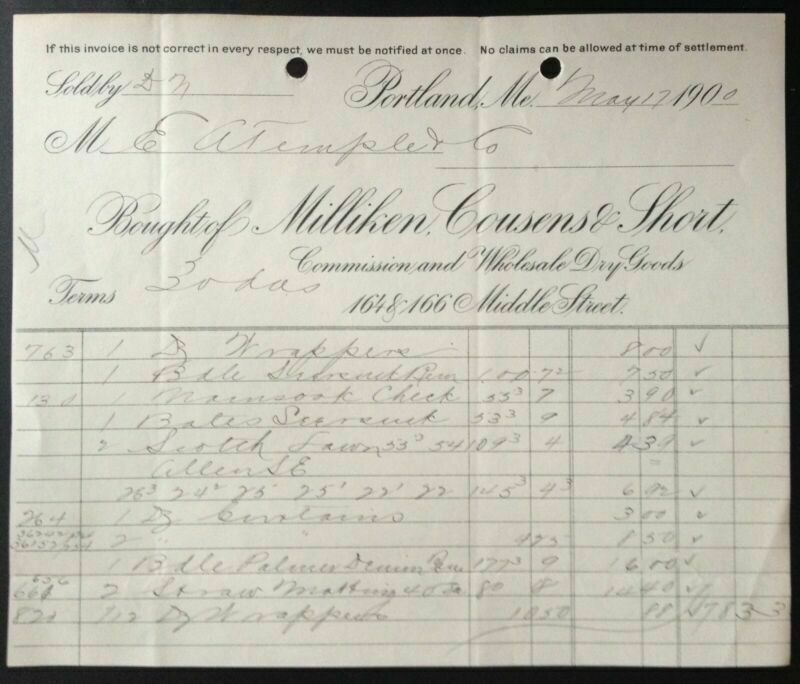 If this invoice is not correct in every respect, we must be notified at once. No claims can be allowed at time of settlement.
Sold by D N Portland, Me. May 17 1900
M E A Temple & Co
Bought of Milliken, Cousens & Short,
Commission and Wholesale Dry Goods
Terms 30 das 164 & 166 Middle Street.
763 1 Dz Wrappers 8 00 ✓
1 Bdle Seersuck Rem 1 00 7½ 7 50 ✓
130 1 Nainsook Check 55³ 7 3 90 ✓
1 Bates Seersuck 53³ 9 4 84 ✓
2 Scotch Lawn 55³ 54 109³ 4 4 39 ✓
Allen S E
25³ 24² 25 25¹ 22¹ 22 145³ 4³ 6 92 ✓
264 1 Dz Curtains 3 00 ✓
2 " 425 8 50 ✓
1 Bdle Palmer Denim Rem 177³ 9 16 00 ✓
656
661 2 Straw Matting 40 80 8 14 40 ✓
820 1/12 Dz Wrappers 10 50 88 ✓ 78 33